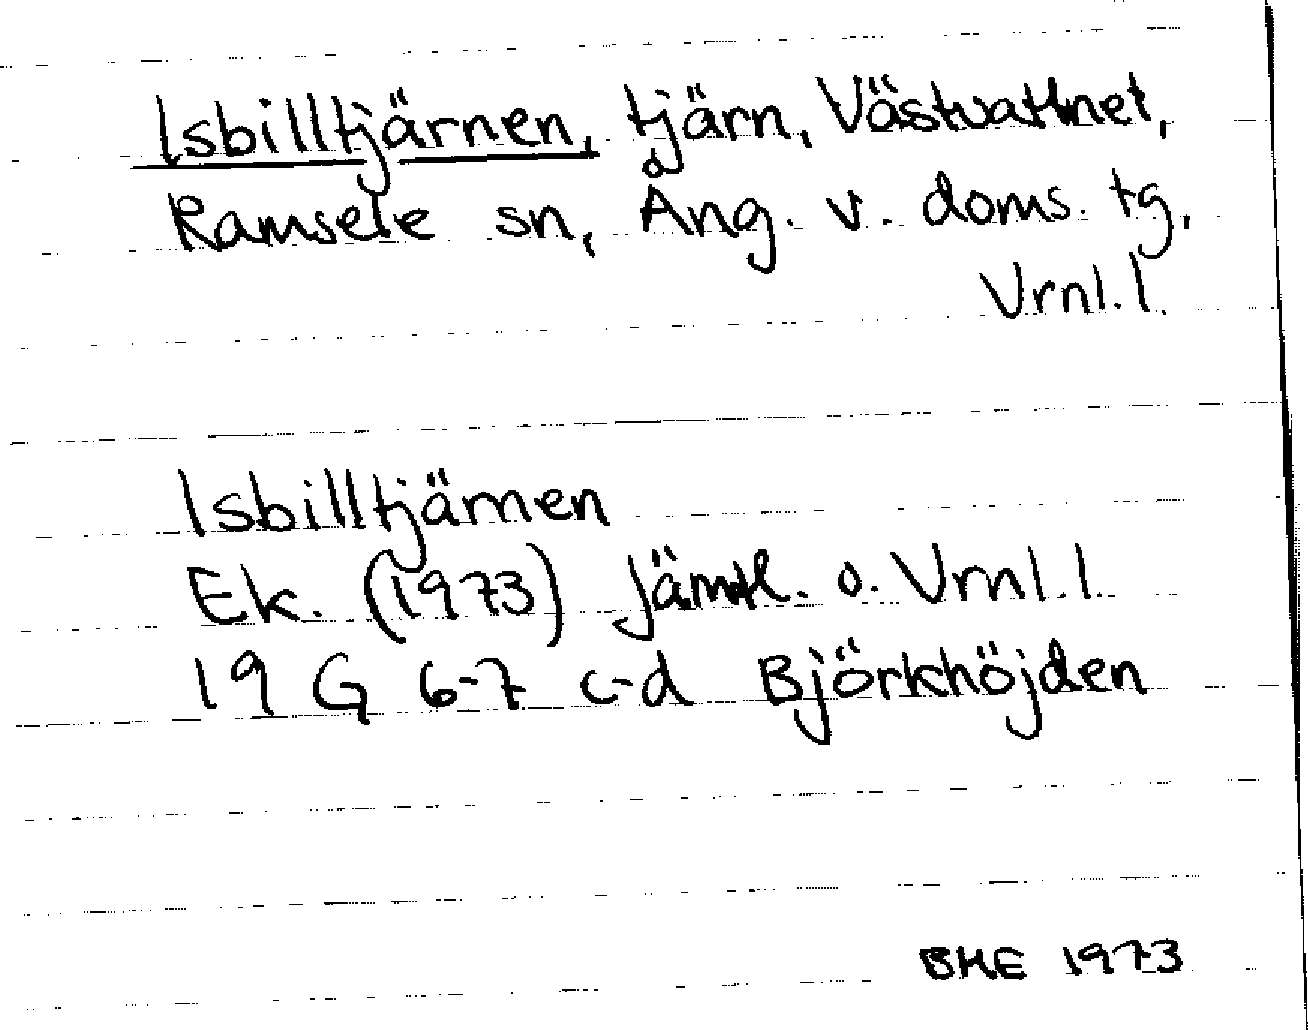 Isbilltjärnen, tjärn, Västvattnet,
Ramsele sn, Ång. v. doms. tg,
Vrnl. l.
Isbilltjärnen
Ek. (1973) Jämtl. o. Vrnl. l.
19 G 6-7 c-d Björkhöjden
BHE 1973